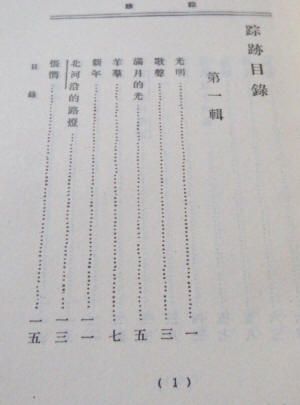 踪跡目錄
第一輯
光明……一
歌聲……三
滿月的光……五
羊羣……七
新年……一一
北河沿的路燈……一三
悵惘……一五
目錄
(1)